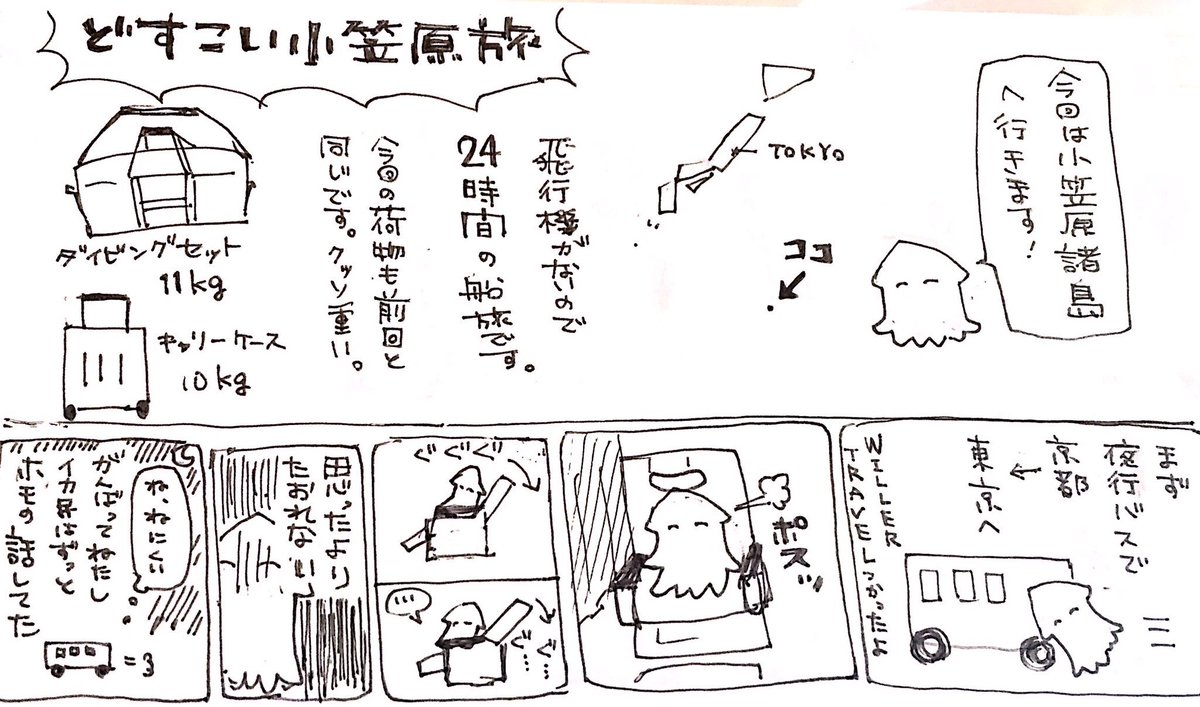 どすこい小笠原旅
今回は小笠原諸島
へ行きます!
TOKYO
ココ
飛行機がないので
24時間の船旅です。
今回の荷物も前回と
同じです。クッソ重い。
ダイビングセット
11kg
キャリーケース
10kg
まず
夜行バスで
京都
↓
東京へ
WILLER
TRAVELつかったよ
ポスッ
ぐぐぐ
ぐ…ぐ…
思ったより
たおれない
ね、ねにくい
がんばってねたし
イカ弟はずっと
ホモの話してた